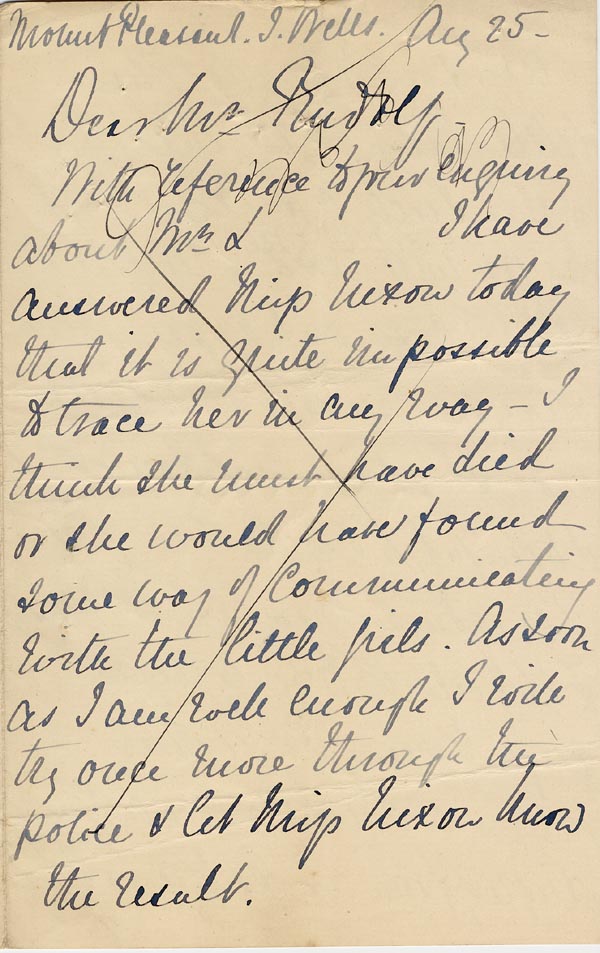 Mount Pleasant. T. Wells. Aug 25-
Dear Mr Rudolf-
With reference to your enquiry
about Mrs L I have
answered Miss Nixon today
that it is quite impossible
to trace her in any way - I
think she must have died
or she would have found
some way of communicating
with the little girls. As soon
as I am well enough I will
try once more through the
police & let Miss Nixon know
the result.